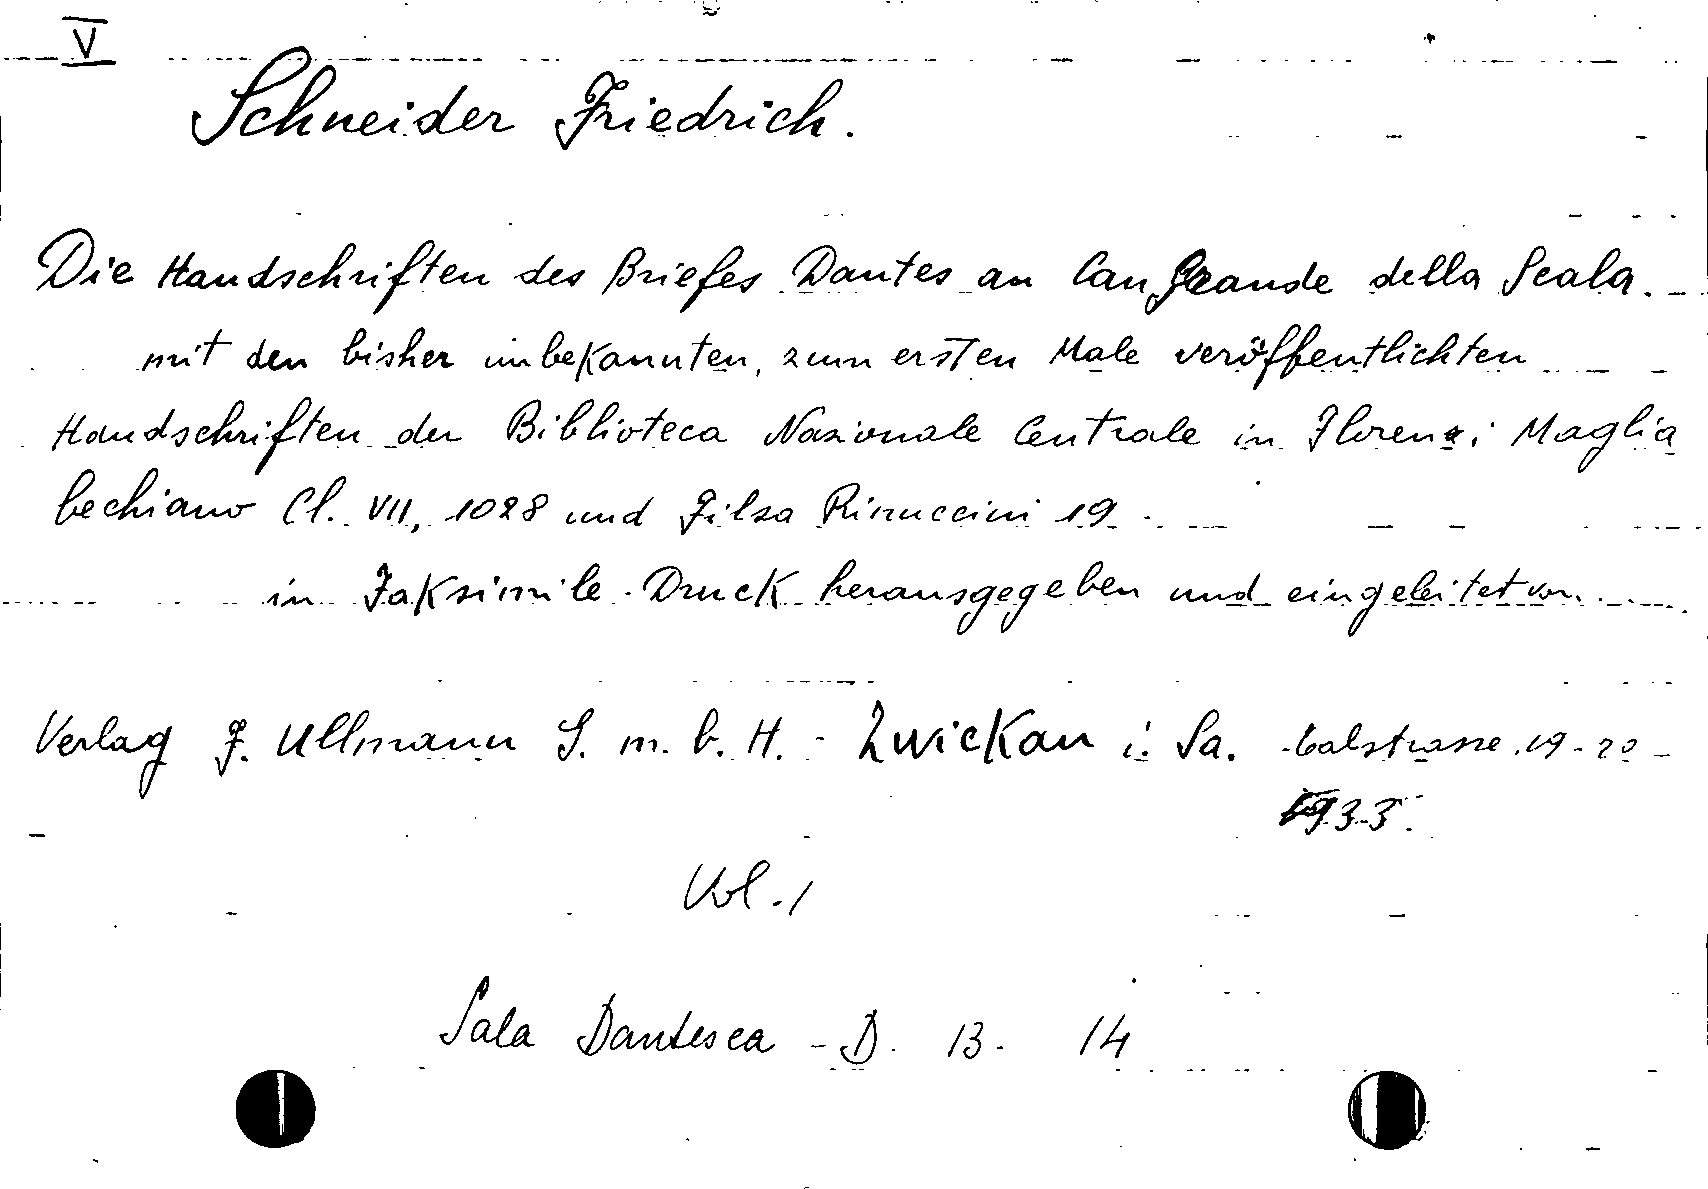 V
Schneider Friedrich.
Die Handschriften des Briefes Dantes an Can Grande della Scala.
mit den bisher unbekannten, zum ersten Male veröffentlichten
Handschriften der Biblioteca Nazionale Centrale in Florenz; Maglia
bechiano Cl. VII, 1028 und Filza Rinuccini 19.
in Faksimile-Druck herausgegeben und eingeleitet von...
Verlag F. Ullmann G. m. b. H. - Zwickau i. Sa. 19-20
1933.
Vol. 1
Sala Dantesca - D. 13. 14